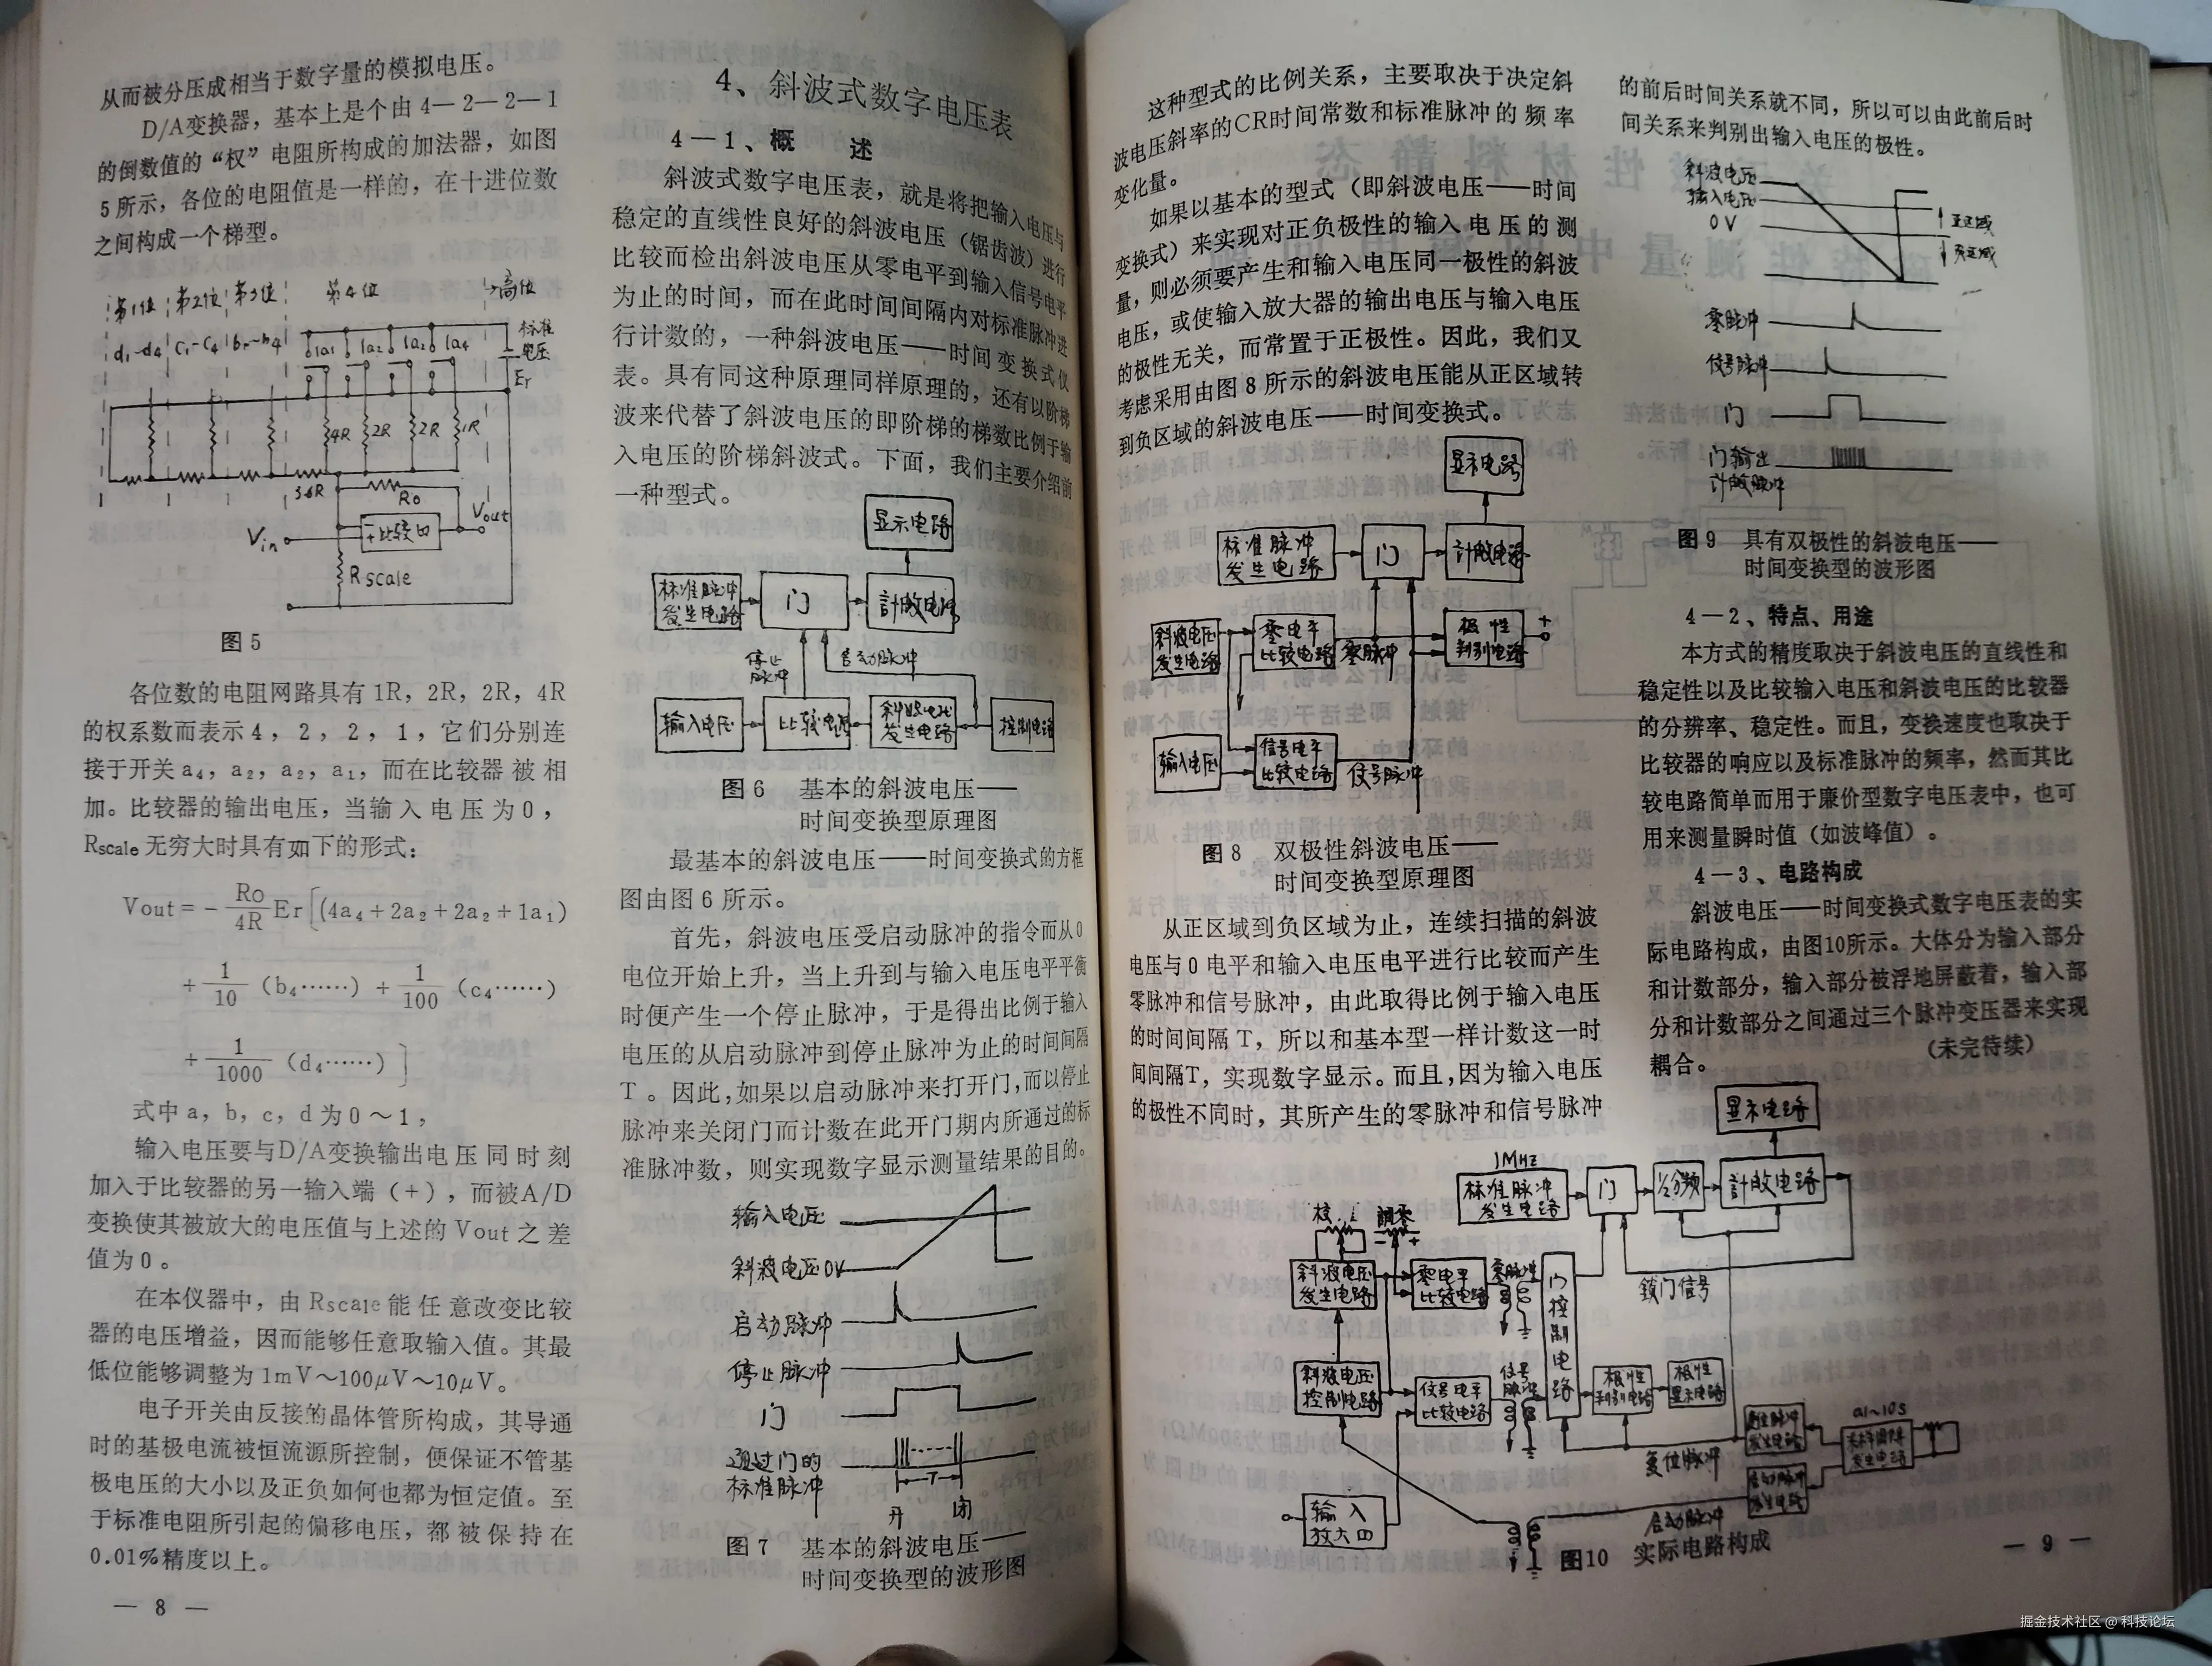 从而被分压成相当于数字量的模拟电压。
D/A变换器，基本上是个由4—2—2—1
的倒数值的“权”电阻所构成的加法器，如图
5所示，各位的电阻值是一样的，在十进位数
之间构成一个梯型。
第1位 第2位 第3位 第4位 →高位
d₁~d₄ C₁~C₄ b₁~b₄ 1a₁ 1a₂ 1a₂ 1a₄ 标准
电压
Er
4R 2R 2R 1R
3.6R
Ro
Vin 比较口 Vout
Rscale
图5
各位数的电阻网路具有1R，2R，2R，4R
的权系数而表示4，2，2，1，它们分别连
接于开关a₄，a₂，a₂，a₁，而在比较器被相
加。比较器的输出电压，当输入电压为0，
Rscale无穷大时具有如下的形式：
Vout = - Ro/4R Er[(4a₄+2a₂+2a₂+1a₁)
+ 1/10 (b₄……) + 1/100 (c₄……)
+ 1/1000 (d₄……)]
式中a，b，c，d为0～1，
输入电压要与D/A变换输出电压同时刻
加入于比较器的另一输入端（+），而被A/D
变换使其被放大的电压值与上述的Vout之差
值为0。
在本仪器中，由Rscale能任意改变比较
器的电压增益，因而能够任意取输入值。其最
低位能够调整为1mV～100μV～10μV。
电子开关由反接的晶体管所构成，其导通
时的基极电流被恒流源所控制，便保证不管基
极电压的大小以及正负如何也都为恒定值。至
于标准电阻所引起的偏移电压，都被保持在
0.01%精度以上。
— 8 —
4、斜波式数字电压表
4—1、概 述
斜波式数字电压表，就是将把输入电压与
稳定的直线性良好的斜波电压（锯齿波）进行
比较而检出斜波电压从零电平到输入信号电平
为止的时间，而在此时间间隔内对标准脉冲进
行计数的，一种斜波电压——时间变换式仪
表。具有同这种原理同样原理的，还有以阶梯
波来代替了斜波电压的即阶梯的梯数比例于输
入电压的阶梯斜波式。下面，我们主要介绍前
一种型式。
显示电路
标准脉冲
发生电路
门
計数电路
停止
脉冲
启动脉冲
输入电压
比较电路
斜波电压
发生电路
控制电路
图6 基本的斜波电压——
时间变换型原理图
最基本的斜波电压——时间变换式的方框
图由图6所示。
首先，斜波电压受启动脉冲的指令而从0
电位开始上升，当上升到与输入电压电平平衡
时便产生一个停止脉冲，于是得出比例于输入
电压的从启动脉冲到停止脉冲为止的时间间隔
T。因此，如果以启动脉冲来打开门，而以停止
脉冲来关闭门而计数在此开门期内所通过的标
准脉冲数，则实现数字显示测量结果的目的。
输入电压
斜波电压0V
启动脉冲
停止脉冲
门
通过门的
标准脉冲
T
开 闭
图7 基本的斜波电压——
时间变换型的波形图
这种型式的比例关系，主要取决于决定斜
波电压斜率的CR时间常数和标准脉冲的频率
变化量。
如果以基本的型式（即斜波电压——时间
变换式）来实现对正负极性的输入电压的测
量，则必须要产生和输入电压同一极性的斜波
电压，或使输入放大器的输出电压与输入电压
的极性无关，而常置于正极性。因此，我们又
考虑采用由图8所示的斜波电压能从正区域转
到负区域的斜波电压——时间变换式。
显示电路
标准脉冲
发生电路
门
計数电路
斜波电压
发生电路
零电平
比较电路
零脉冲
极性
判别电路
+
-
输入电压
信号电平
比较电路
信号脉冲
图8 双极性斜波电压——
时间变换型原理图
从正区域到负区域为止，连续扫描的斜波
电压与0电平和输入电压电平进行比较而产生
零脉冲和信号脉冲，由此取得比例于输入电压
的时间间隔T，所以和基本型一样计数这一时
间间隔T，实现数字显示。而且，因为输入电压
的极性不同时，其所产生的零脉冲和信号脉冲
的前后时间关系就不同，所以可以由此前后时
间关系来判别出输入电压的极性。
斜波电压
输入电压
0V
正区域
负区域
零脉冲
信号脉冲
门
门输出
计数脉冲
图9 具有双极性的斜波电压——
时间变换型的波形图
4—2、特点、用途
本方式的精度取决于斜波电压的直线性和
稳定性以及比较输入电压和斜波电压的比较器
的分辨率、稳定性。而且，变换速度也取决于
比较器的响应以及标准脉冲的频率，然而其比
较电路简单而用于廉价型数字电压表中，也可
用来测量瞬时值（如波峰值）。
4—3、电路构成
斜波电压——时间变换式数字电压表的实
际电路构成，由图10所示。大体分为输入部分
和计数部分，输入部分被浮地屏蔽着，输入部
分和计数部分之间通过三个脉冲变压器来实现
耦合。
（未完待续）
显示电路
1MHz
标准脉冲
发生电路
门
½分频
計数电路
調零
- +
斜波电压
发生电路
零电平
比较电路
零脉冲
门控制电路
鎖门信号
斜波电压
控制电路
信号电平
比较电路
信号脉冲
极性
判别电路
极性
显示电路
复位脉冲
发生电路
0.1~10s
发生电路
复位脉冲
启动脉冲
发生电路
启动脉冲
输入
放大口
图10 实际电路构成
— 9 —
掘金技术社区 @ 科技论坛